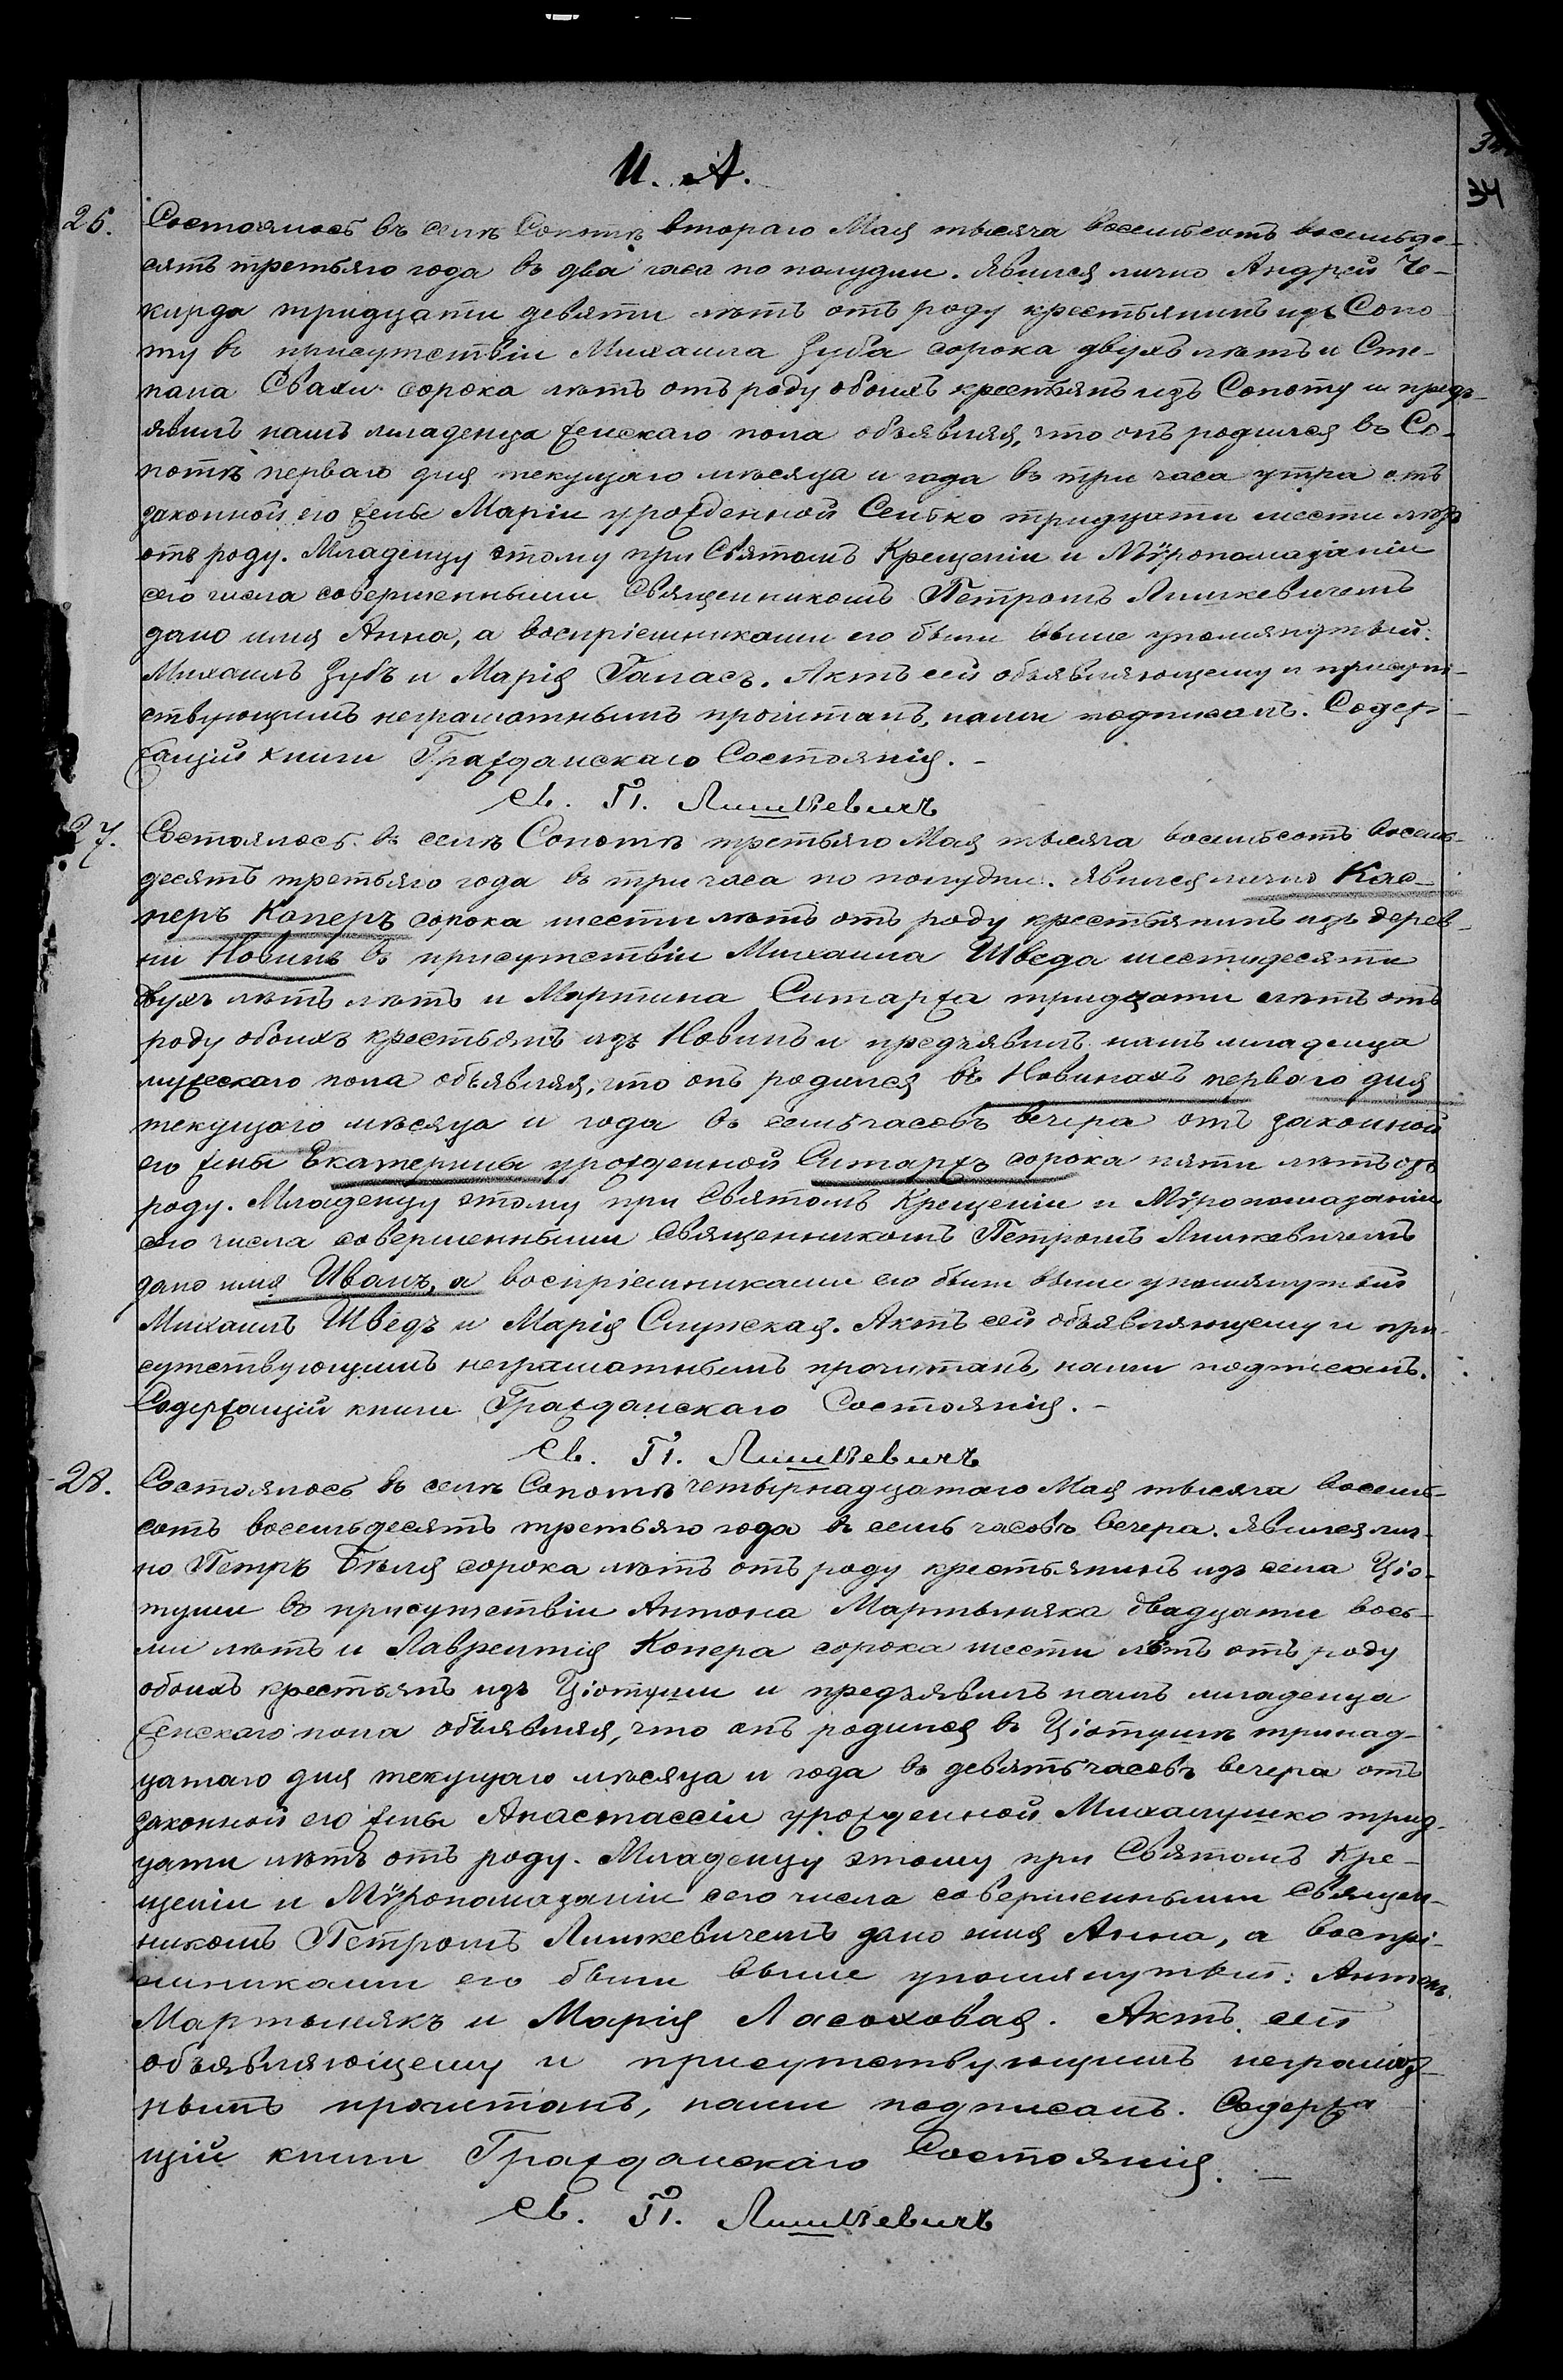 И. А.
34
26. Состоялось въ селѣ Сопотѣ втораго Мая тысяча восемьсотъ восемьде-
сятъ третьяго года въ два часа по полудни. Явился лично Андрей Че-
кирда тридцати девяти лѣтъ отъ роду крестьянинъ изъ Сопо
ту въ присутствіи Михаила Зуба сорока двухъ лѣтъ и Сте-
пана Свахи сорока лѣтъ отъ роду обоихъ крестьянъ изъ Сопоту и предъ-
явилъ намъ младенца женскаго пола объявляя, что онъ родился въ Со-
потѣ перваго дня текущаго мѣсяца и года въ три часа утра отъ
законной его жены Маріи урожденной Сенько тридцати шести лѣтъ
отъ роду. Младенцу этому при Святомъ Крещеніи и Мѵропомазаніи
сего числа совершенными Священникомъ Петромъ Лишкевичемъ
дано имя Анна, а воспріемниками его были выше упомянутый:
Михаилъ Зубъ и Марія Папасъ. Актъ сей объявляющему и присут-
ствующимъ неграмотнымъ прочитанъ, нами подписанъ. Содер-
жащій книги Гражданскаго Состоянія. -
Св. П. Лишкевичъ
27. Состоялось въ селѣ Сопотѣ третьяго Мая тысяча восемьсотъ восемь-
десятъ третьяго года въ три часа по полудни. Явился лично Кас-
перъ Коперъ сорока шести лѣтъ отъ роду крестьянинъ изъ дерев-
ни Новинъ въ присутствіи Михаила Шведа шестидесяти
двухъ лѣтъ лѣтъ и Мартина Ситаржа тридцати лѣтъ отъ
роду обоихъ крестьянъ изъ Новинъ и предъявилъ намъ младенца
мужескаго пола объявляя, что онъ родился въ Новинахъ перваго дня
текущаго мѣсяца и года въ семь часовъ вечера отъ законной
его жены Екатерины урожденной Ситаржъ сорока пяти лѣтъ отъ
роду. Младенцу этому при Святомъ Крещеніи и Мѵропомазаніи
сего числа совершенными Священникомъ Петромъ Лишкевичемъ
дано имя Иванъ, а воспріемниками его были выше упомянутый
Михаилъ Шведъ и Марія Слупская. Актъ сей объявляющему и при-
сутствующимъ неграмотнымъ прочитанъ, нами подписанъ.
Содержащій книги Гражданскаго Состоянія. -
Св. П. Лишкевичъ
28. Состоялось въ селѣ Сопотѣ четырнадцатаго Мая тысяча восемь-
сотъ восемьдесятъ третьяго года въ семь часовъ вечера. Явился лич-
но Петръ Бѣля сорока лѣтъ отъ роду крестьянинъ изъ села Ціо-
туши въ присутствіи Антона Мартыняка двадцати вось-
ми лѣтъ и Лаврентія Копера сорока шести лѣтъ отъ роду
обоихъ крестьянъ изъ Ціотуши и предъявилъ намъ младенца
женскаго пола объявляя, что онъ родился въ Ціотушѣ тринад-
цатаго дня текущаго мѣсяца и года въ девять часовъ вечера отъ
законной его жены Анастассіи урожденной Михалушко трид-
цати лѣтъ отъ роду. Младенцу этому при Святомъ Кре-
щеніи и Мѵропомазаніи сего числа совершенными Священ-
никомъ Петромъ Лишкевичемъ дано имя Анна, а воспрі-
емниками его были выше упомянутый: Антонъ
Мартынякъ и Марія Ласоховая. Актъ сей
объявляющему и присутствующимъ неграмот-
нымъ прочитанъ, нами подписанъ. Содержа
щій книги Гражданскаго Состоянія. -
Св. П. Лишкевичъ